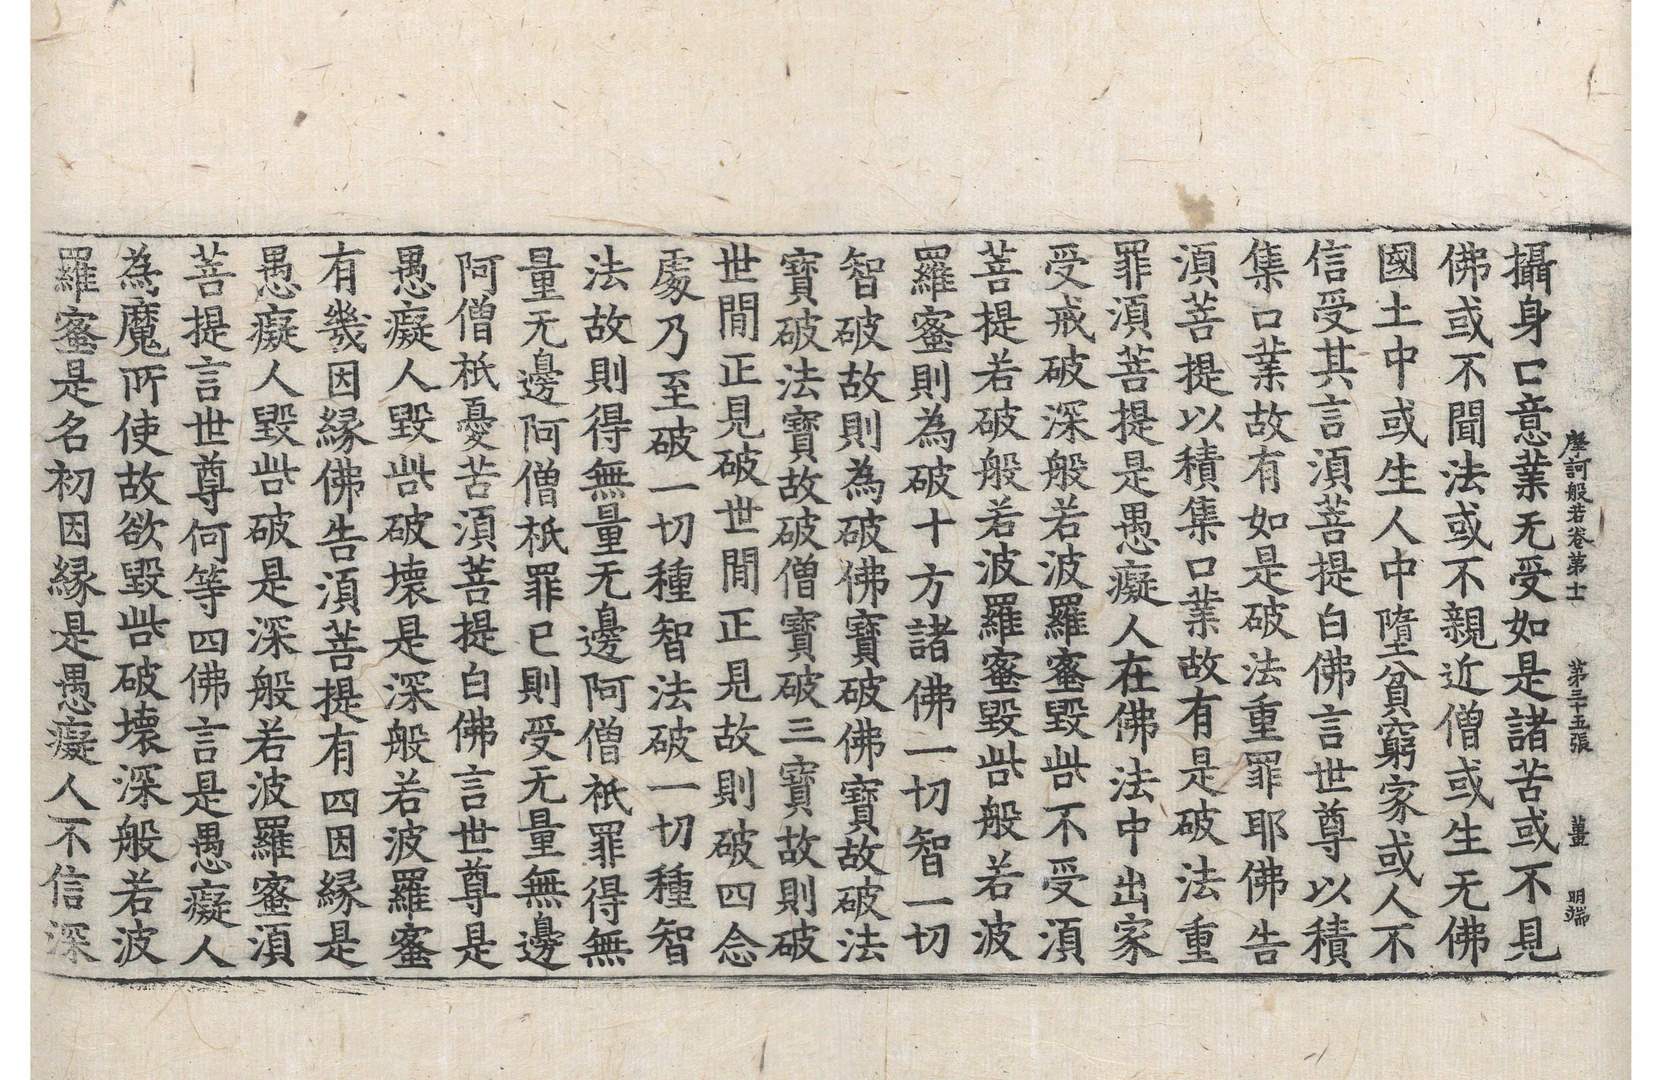 摩訶般若卷苐十一 第三十五張 薑 明端
攝身口意業无受如是諸苦或不見
佛或不聞法或不親近僧或生无佛
國土中或生人中墮貧窮家或人不
信受其言湏菩提白佛言世尊以積
集口業故有如是破法重罪耶佛告
湏菩提以積集口業故有是破法重
罪湏菩提是愚癡人在佛法中出家
受戒破深般若波羅蜜毀呰不受湏
菩提若破般若波羅蜜毀呰般若波
羅蜜則為破十方諸佛一切智一切
智破故則為破佛寶破佛寶故破法
寶破法寶故破僧寶破三寶故則破
世閒正見破世閒正見故則破四念
處乃至破一切種智法破一切種智
法故則得無量无邊阿僧祇罪得無
量无邊阿僧祇罪已則受无量無邊
阿僧祇憂苦湏菩提白佛言世尊是
愚癡人毀呰破壞是深般若波羅蜜
有幾因縁佛告湏菩提有四因縁是
愚癡人毀呰破是深般若波羅蜜湏
菩提言世尊何等四佛言是愚癡人
為魔所使故欲毀呰破壞深般若波
羅蜜是名初因縁是愚癡人不信深